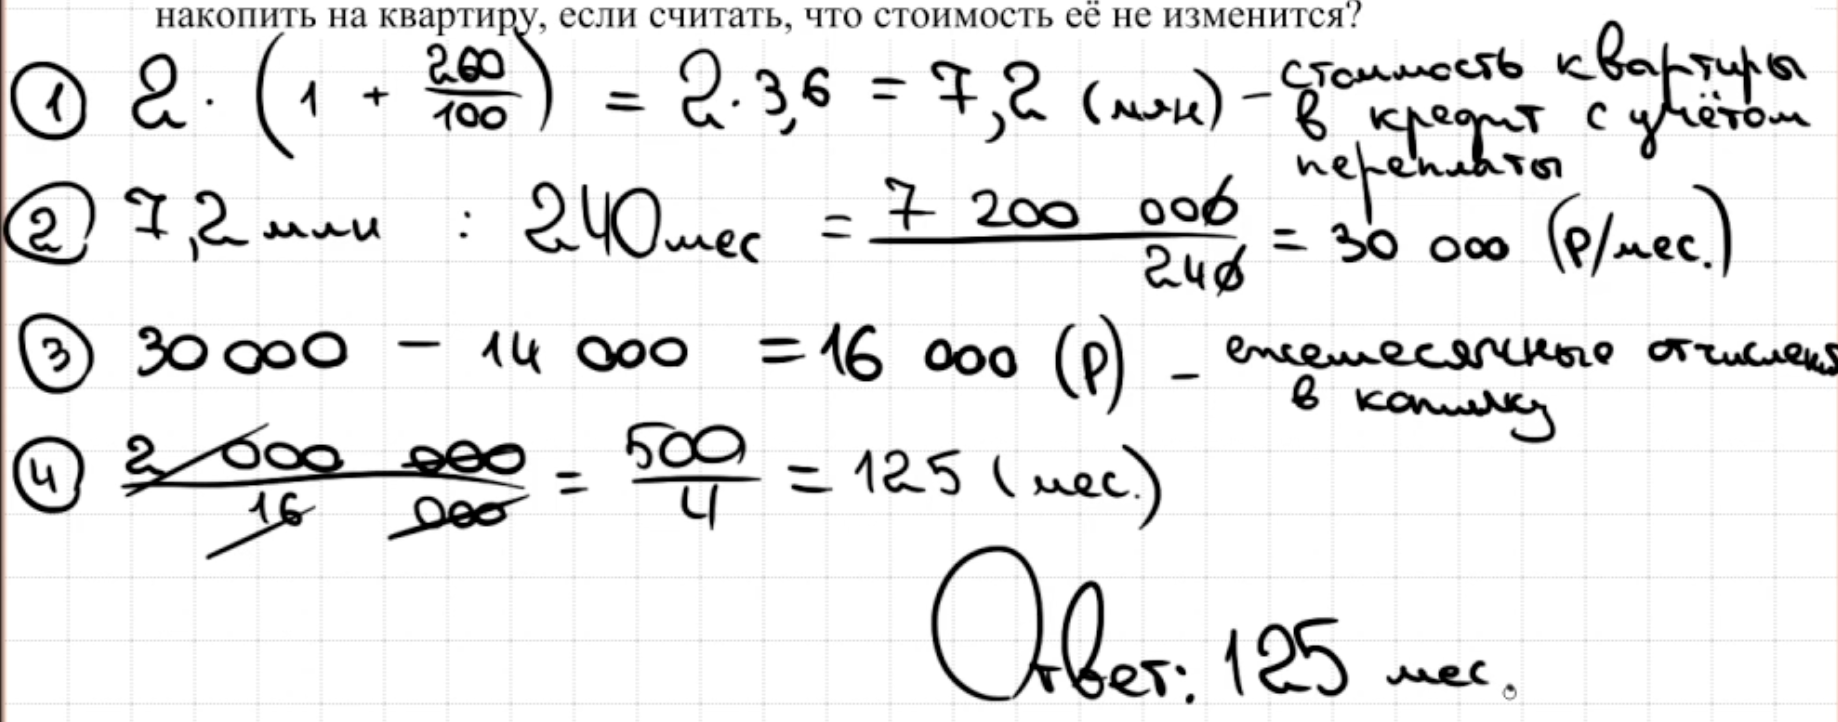 накопить на квартиру, если считать, что стоимость её не изменится?
① 2 · (1 + 260/100) = 2 · 3,6 = 7,2 (млн) – стоимость квартиры
в кредит с учётом
переплаты
② 7,2 млн : 240 мес = 7 200 000/240 = 30 000 (р/мес.)
③ 30 000 – 14 000 = 16 000 (р) – ежемесячные отчислен
в копилку
④ 2 000 000/16 000 = 500/4 = 125 (мес.)
Ответ: 125 мес.